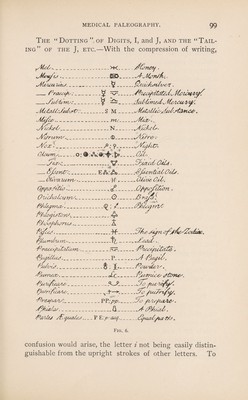 MEDICAL PALEOGRAPHY. 99
The "Dotting" of Digits, I, and J, and the "Tail-
ing" of the J, etc.—With the compression of writing,
Mel. Honey.
Mensis A Month.
Mercurius Quicksilver.
— Precip. Precipitated Mercury.
— Sublim. Sublimed Mercury.
Metall: Subst: S M Metallic Substance.
Misce m Mix.
Nickel N. Nickel.
Nox. Night.
Oleum Oil.
— Fix: Fixed Oils.
— Essent: E Essential Oils.
— Olivarum Olive Oil.
Oppositio Opposition.
Orichalcum Brass.
Phlegma Phlegm.
Phlogiston
Phosphorus
Pisces The sign of the Zodiac.
Plumbum Lead.
Præcipitatum Precipitate.
Pugillus P. A Pugil.
Pulvis Powder.
Pumex Pumice Stone.
Purificare To purify.
Putrificare To putrify.
Preparare PP: To prepare.
Phiala A Phial.
Partes Æquales P E Equal parts.
Fig. 8.
confusion would arise, the letter i not being easily distin-
guishable from the upright strokes of other letters. To